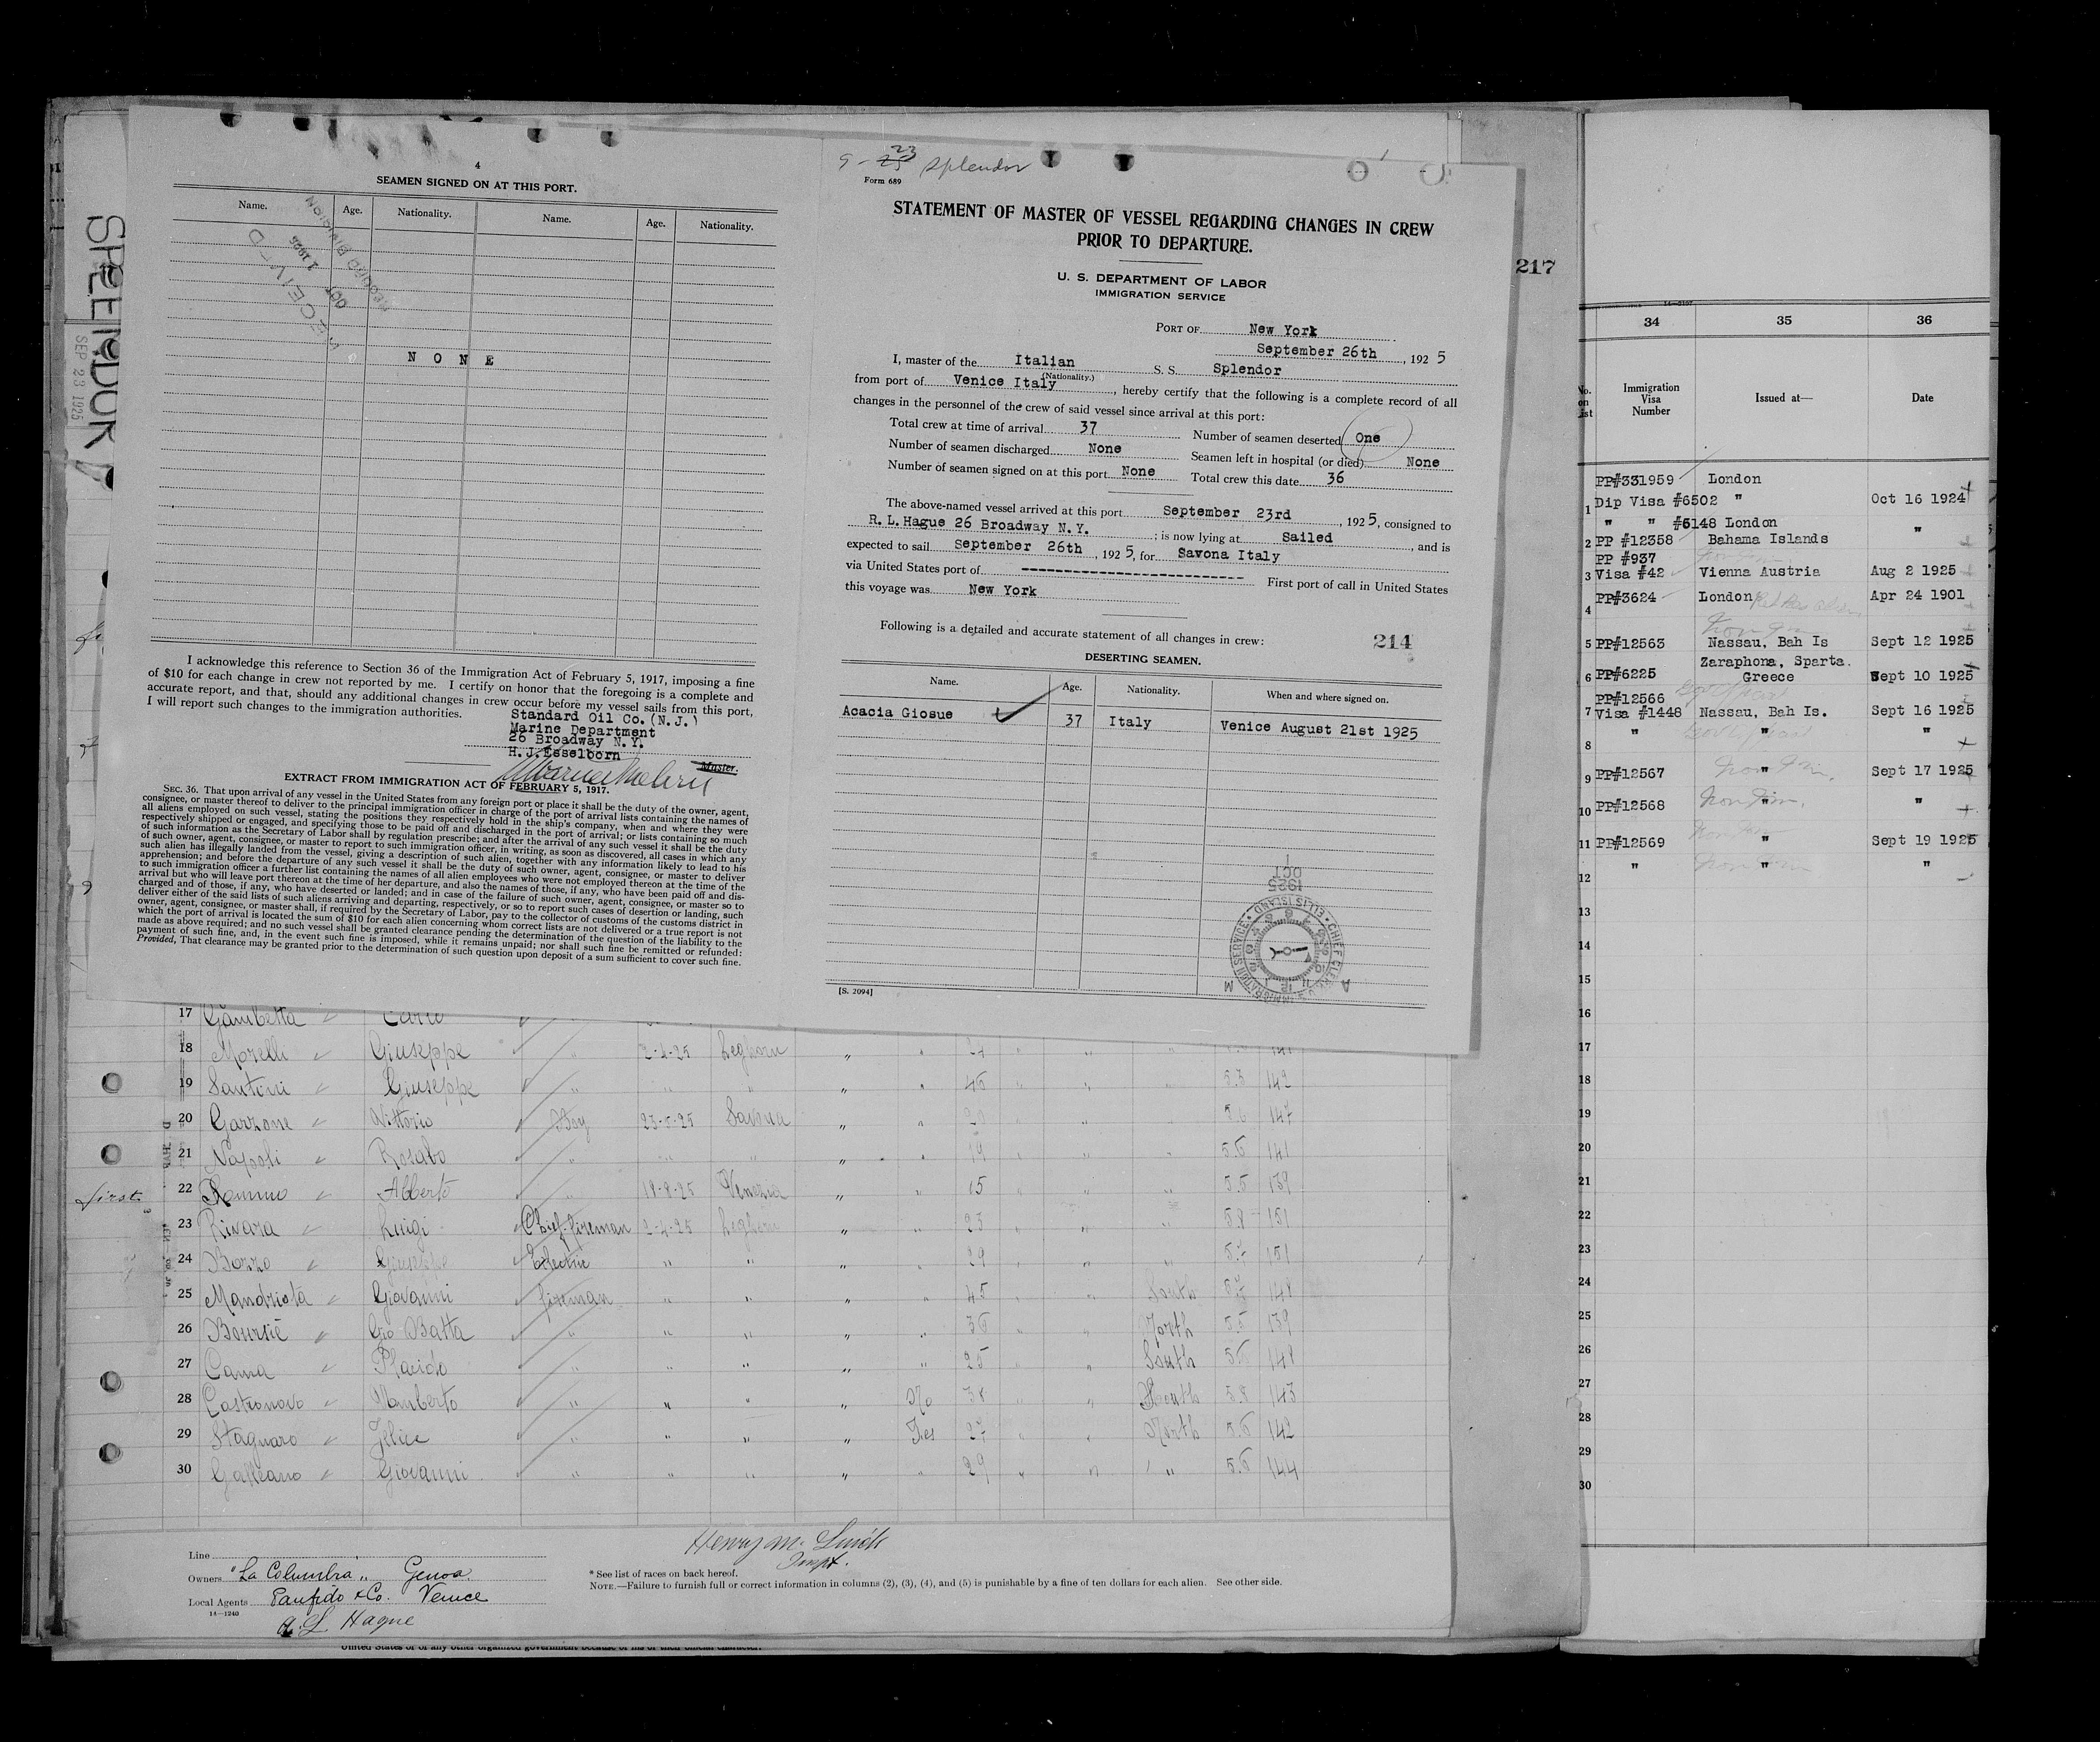 SPLENDOR
SEP 23 1925
4
SEAMEN SIGNED ON AT THIS PORT.
Name. Age. Nationality. Name. Age. Nationality.
RECEIVED
OCT 1 1925
RECORD DIVISION
N O N E
I acknowledge this reference to Section 36 of the Immigration Act of February 5, 1917, imposing a fine
of $10 for each change in crew not reported by me. I certify on honor that the foregoing is a complete and
accurate report, and that, should any additional changes in crew occur before my vessel sails from this port,
I will report such changes to the immigration authorities.
Standard Oil Co.(N.J.)
Marine Department
26 Broadway N.Y.
H.J.Esselborn
Master.
EXTRACT FROM IMMIGRATION ACT OF FEBRUARY 5, 1917.
SEC. 36. That upon arrival of any vessel in the United States from any foreign port or place it shall be the duty of the owner, agent,
consignee, or master thereof to deliver to the principal immigration officer in charge of the port of arrival lists containing the names of
all aliens employed on such vessel, stating the positions they respectively hold in the ship's company, when and where they were
respectively shipped or engaged, and specifying those to be paid off and discharged in the port of arrival; or lists containing so much
of such information as the Secretary of Labor shall by regulation prescribe; and after the arrival of any such vessel it shall be the duty
of such owner, agent, consignee, or master to report to such immigration officer, in writing, as soon as discovered, all cases in which any
such alien has illegally landed from the vessel, giving a description of such alien, together with any information likely to lead to his
apprehension; and before the departure of any such vessel it shall be the duty of such owner, agent, consignee, or master to deliver
to such immigration officer a further list containing the names of all alien employees who were not employed thereon at the time of the
arrival but who will leave port thereon at the time of her departure, and also the names of those, if any, who have been paid off and dis-
charged and of those, if any, who have deserted or landed; and in case of the failure of such owner, agent, consignee, or master so to
deliver either of the said lists of such aliens arriving and departing, respectively, or so to report such cases of desertion or landing, such
owner, agent, consignee, or master shall, if required by the Secretary of Labor, pay to the collector of customs of the customs district in
which the port of arrival is located the sum of $10 for each alien concerning whom correct lists are not delivered or a true report is not
made as above required; and no such vessel shall be granted clearance pending the determination of the question of the liability to the
payment of such fine, and, in the event such fine is imposed, while it remains unpaid; nor shall such fine be remitted or refunded:
Provided, That clearance may be granted prior to the determination of such question upon deposit of a sum sufficient to cover such fine.
9-23 Splendor
Form 689
STATEMENT OF MASTER OF VESSEL REGARDING CHANGES IN CREW
PRIOR TO DEPARTURE.
U. S. DEPARTMENT OF LABOR
IMMIGRATION SERVICE
PORT OF New York
September 26th, 1925
I, master of the Italian S. S. Splendor
(Nationality.)
from port of Venice Italy, hereby certify that the following is a complete record of all
changes in the personnel of the crew of said vessel since arrival at this port:
Total crew at time of arrival 37 Number of seamen deserted One
Number of seamen discharged None Seamen left in hospital (or died) None
Number of seamen signed on at this port None Total crew this date 36
The above-named vessel arrived at this port September 23rd, 1925, consigned to
R.L.Hague 26 Broadway N.Y.; is now lying at Sailed, and is
expected to sail September 26th, 1925, for Savona Italy
via United States port of First port of call in United States
this voyage was New York
Following is a detailed and accurate statement of all changes in crew: 214
DESERTING SEAMEN.
Name. Age. Nationality. When and where signed on.
Acacia Giosue 37 Italy Venice August 21st 1925
1925
OCT 1
IMMIGRATION SERVICE
CHIEF CLERK
ELLIS ISLAND
[S. 2094]
217
34 35 36
No. on List Immigration Visa Number Issued at— Date
PP#331959 London
1 Dip Visa #6502 " Oct 16 1924
" " #6148 London "
2 PP #12358 Bahama Islands
PP #937
3 Visa #42 Vienna Austria Aug 2 1925
4 PP#3624 London Apr 24 1901
5 PP#12563 Nassau, Bah Is Sept 12 1925
Zaraphona, Sparta.
6 PP#6225 Greece Sept 10 1925
PP#12566
7 Visa #1448 Nassau, Bah Is. Sept 16 1925
8 " " "
9 PP#12567 " Sept 17 1925
10 PP#12568 " "
11 PP#12569 " Sept 19 1925
12 " " "
13
14
15
16
17
18
19
20
21
22
23
24
25
26
27
28
29
30
17 Gambetta Carlo
18 Morelli Giuseppe " 2-4-25 Leghorn " " 24
19 Santini Giuseppe " " " " " 46 " " " 5.3 142
20 Garrone Vittorio Boy 23-5-25 Savona " " 20 5.6 147
21 Napoli Rosabo " " " " " 19 " " " 5.6 141
first. 22 Alberto " 19-8-25 Venezia " " 15 5.5 139
23 Rivara Luigi Chief fireman 2-4-25 Leghorn " " 23 5.8 151
24 Bozzo Giuseppe Electric " " " " 29 5.7 151
25 Mandriota Giovanni fireman " " " " 45 " " South 148
26 Gio Batta " " " " " 36 " " North 5.5 139
27 Cama Placido " " " " " 25 " South 5.6 148
28 Castronovo Umberto " " " " No 38 " " South 5.8 143
29 Stagnaro Felice " " " " Yes 27 " " North 5.6 142
30 Galleano Giovanni " " " " " 29 " " " 5.6 144
Henry M. Smith
Inspt.
Line
Owners "La Columbia" Genoa
Local Agents Panfido & Co. Venice
14—1240
R. L. Hague
* See list of races on back hereof.
NOTE.—Failure to furnish full or correct information in columns (2), (3), (4), and (5) is punishable by a fine of ten dollars for each alien. See other side.
United States or of any other organized government because of his or their official character.